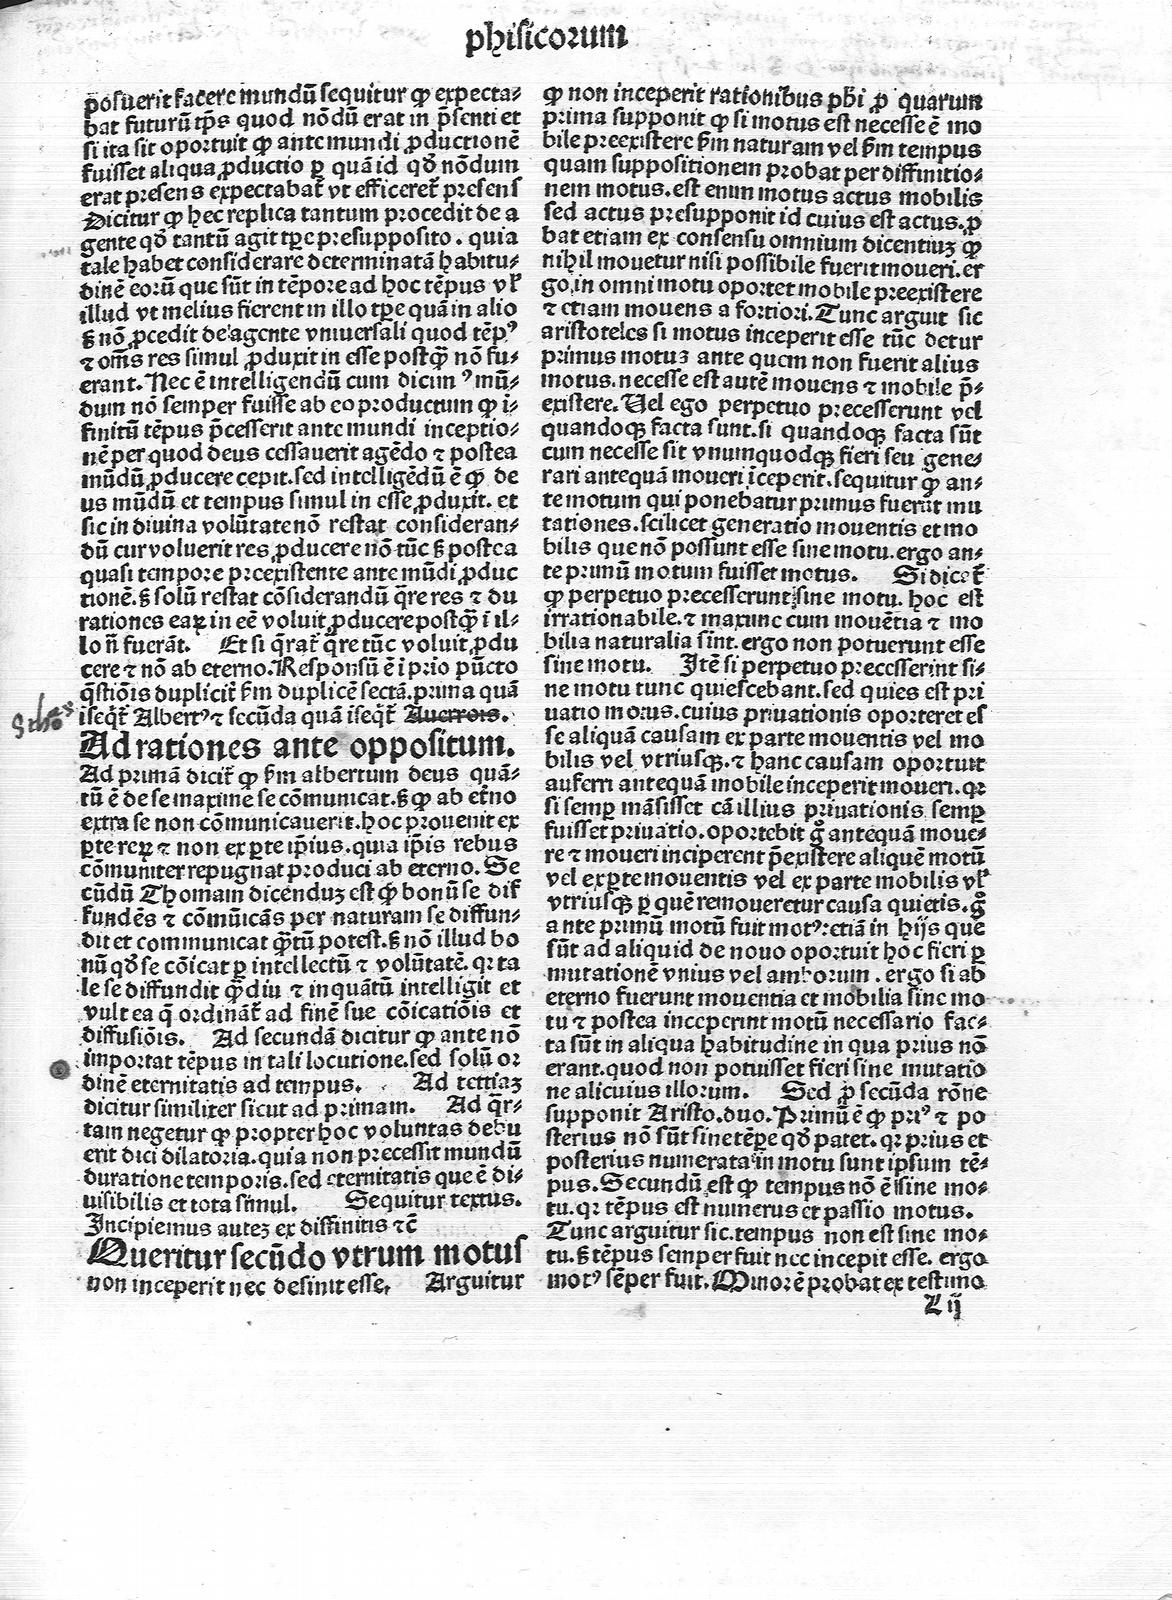 phisicorum
posuerit facere mundū sequitur ꝙ expecta⸗
bat futurū tp̄s quod nōdū erat in p̄senti et
si ita sit oportuit ꝙ ante mundi ꝓductionē
fuisset aliqua ꝓductio ꝑ quā id qđ nōdum
erat presens expectabat᷑ vt efficeret᷑ presens
Dicitur ꝙ hec replica tantum procedit de a
gente qđ tantū agit tꝑe presupposito. quia
tale habet considerare determinatā habitu⸗
dinē eorū que sūt in tēpore ad hoc tēpus vł
illud vt melius fierent in illo tꝑe quā in alio
ꝫ nō ꝓcedit de agente vniuersali quod tēpꝰ
⁊ om̄s res simul ꝓduxit in esse postꝙ̄ nō fu⸗
erant. Nec ē intelligendū cum dicimꝰ mū⸗
dum nō semper fuisse ab eo productum ꝙ ī⸗
finitū tēpus p̄cesserit ante mundi inceptio⸗
nē per quod deus cessauerit agēdo ⁊ postea
mūdū ꝓducere cepit. sed intelligēdū ē ꝙ de
us mūdū et tempus simul in esse ꝓduxit. et
sic in diuina volūtate nō restat consideran⸗
dū cur voluerit res ꝓducere nō tūc ꝫ postea
quasi tempore preexistente ante mūdi ꝓduc
tionē. ꝫ solū restat cōsiderandū q̄re res ⁊ du
rationes eaꝝ in eē voluit ꝓducere postꝙ̄ ī il⸗
lo n̄ fuerāt. Et si q̄rat᷑ q̄re tūc voluit ꝓdu
cere ⁊ nō ab eterno. Responsū ē ī prio pūcto
q̄stiōis duplicit᷑ ẜm duplicē sectā. prima quā
iseq̄t᷑ Albertꝰ ⁊ secūda quā iseq̄t᷑ Auerrois.
Ad rationes ante oppositum.
Ad primā dicit᷑ ꝙ ẜm albertum deus quā⸗
tū ē de se maxime se cōmunicat. ꝫ ꝙ ab et᷑no
extra se non cōmunicauerit. hoc prouenit ex
ꝑte reꝝ ⁊ non ex ꝑte ip̄ius. quia ip̄is rebus
cōmuniter repugnat produci ab eterno. Se
cūdū Thomam dicenduꝫ est ꝙ bonū se dif
fundēs ⁊ cōmūicās per naturam se diffun⸗
dit et communicat ꝙ̄tū potest. ꝫ nō illud bo
nū qđ se cōicat ꝑ intellectū ⁊ volūtatē. qꝛ ta
le se diffundit ꝙ̄diu ⁊ inquātū intelligit et
vult ea q̄ ordināt᷑ ad finē sue cōicatiōis et
diffusiōis. Ad secundā dicitur ꝙ ante nō
importat tēpus in tali locutione. sed solū or
dinē eternitatis ad tempus. Ad tertiaꝫ
dicitur similiter sicut ad primam. Ad q̄r⸗
tam negetur ꝙ propter hoc voluntas debu
erit dici dilatoria. quia non precessit mundū
duratione temporis. sed eternitatis que ē di⸗
uisibilis et tota simul. Sequitur textus.
Incipiemus auteꝫ ex diffinitis ⁊c̄
Queritur secūdo vtrum motus
non inceperit nec desinit esse. Arguitur
ꝙ non inceperit rationibus phi ꝓ quarum
prima supponit ꝙ si motus est necesse ē mo
bile preexistere ẜm naturam vel ẜm tempus
quam suppositionem probat per diffinitio⸗
nem motus. est enim motus actus mobilis
sed actus presupponit id cuius est actus. ꝓ
bat etiam ex consensu omnium dicentiuꝫ ꝙ
nihil mouetur nisi possibile fuerit moueri. er
go in omni motu oportet mobile preexistere
⁊ etiam mouens a fortiori. Tunc arguit sic
aristoteles si motus inceperit esse tūc detur
primus motuꝫ ante quem non fuerit alius
motus. necesse est autē mouens ⁊ mobile p̄⸗
existere. Vel ergo perpetuo precesserunt vel
quandoqꝫ facta sunt. si quandoqꝫ facta sūt
cum necesse sit vnumquodqꝫ fieri seu gene⸗
rari antequā moueri īceperit. sequitur ꝙ an⸗
te motum qui ponebatur primus fuerit mu
tationes. scilicet generatio mouentis et mo
bilis que nō possunt esse sine motu. ergo an⸗
te primū motum fuisset motus. Si dicat᷑
ꝙ perpetuo precesserunt sine motu. hoc est
irrationabile. ⁊ maxime cum mouētia ⁊ mo
bilia naturalia sint. ergo non potuerunt esse
sine motu. Itē si perpetuo precesserint si⸗
ne motu tunc quiescebant. sed quies est pri
uatio motus. cuius priuationis oporteret es
se aliquā causam ex parte mouentis vel mo
bilis vel vtriusqꝫ. ⁊ hanc causam oportuit
auferri antequā mobile inceperit moueri. qꝛ
si semꝑ māsisset cā illius priuationis semꝑ
fuisset priuatio. oportebit g̊ antequā moue⸗
re ⁊ moueri inciperent p̄existere aliquē motū
vel ex ꝑte mouentis vel ex parte mobilis vł
vtriusqꝫ ꝑ quē remoueretur causa quietis. g̊
ante primū motū fuit motꝰ: etiā in hijs que
sūt ad aliquid de nouo oportuit hoc fieri ꝑ
mutationē vnius vel amborum. ergo si ab
eterno fuerunt mouentia et mobilia sine mo
tu ⁊ postea inceperint motū necessario fac⸗
ta sūt in aliqua habitudine in qua prius nō
erant. quod non potuisset fieri sine mutatio
ne alicuius illorum. Sed ꝓ secūda rōne
supponit Aristo. duo. Primū ē ꝙ priꝰ ⁊ po
sterius nō sūt sine tēꝑe qđ patet. qꝛ prius et
posterius numerata in motu sunt ipsum tē⸗
pus. Secundū est ꝙ tempus nō ē sine mo⸗
tu. qꝛ tēpus est numerus et passio motus.
Tunc arguitur sic. tempus non est sine mo⸗
tu. ꝫ tēpus semper fuit nec incepit esse. ergo
motꝰ sēper fuit. Minorē probat ex testimo
L ij